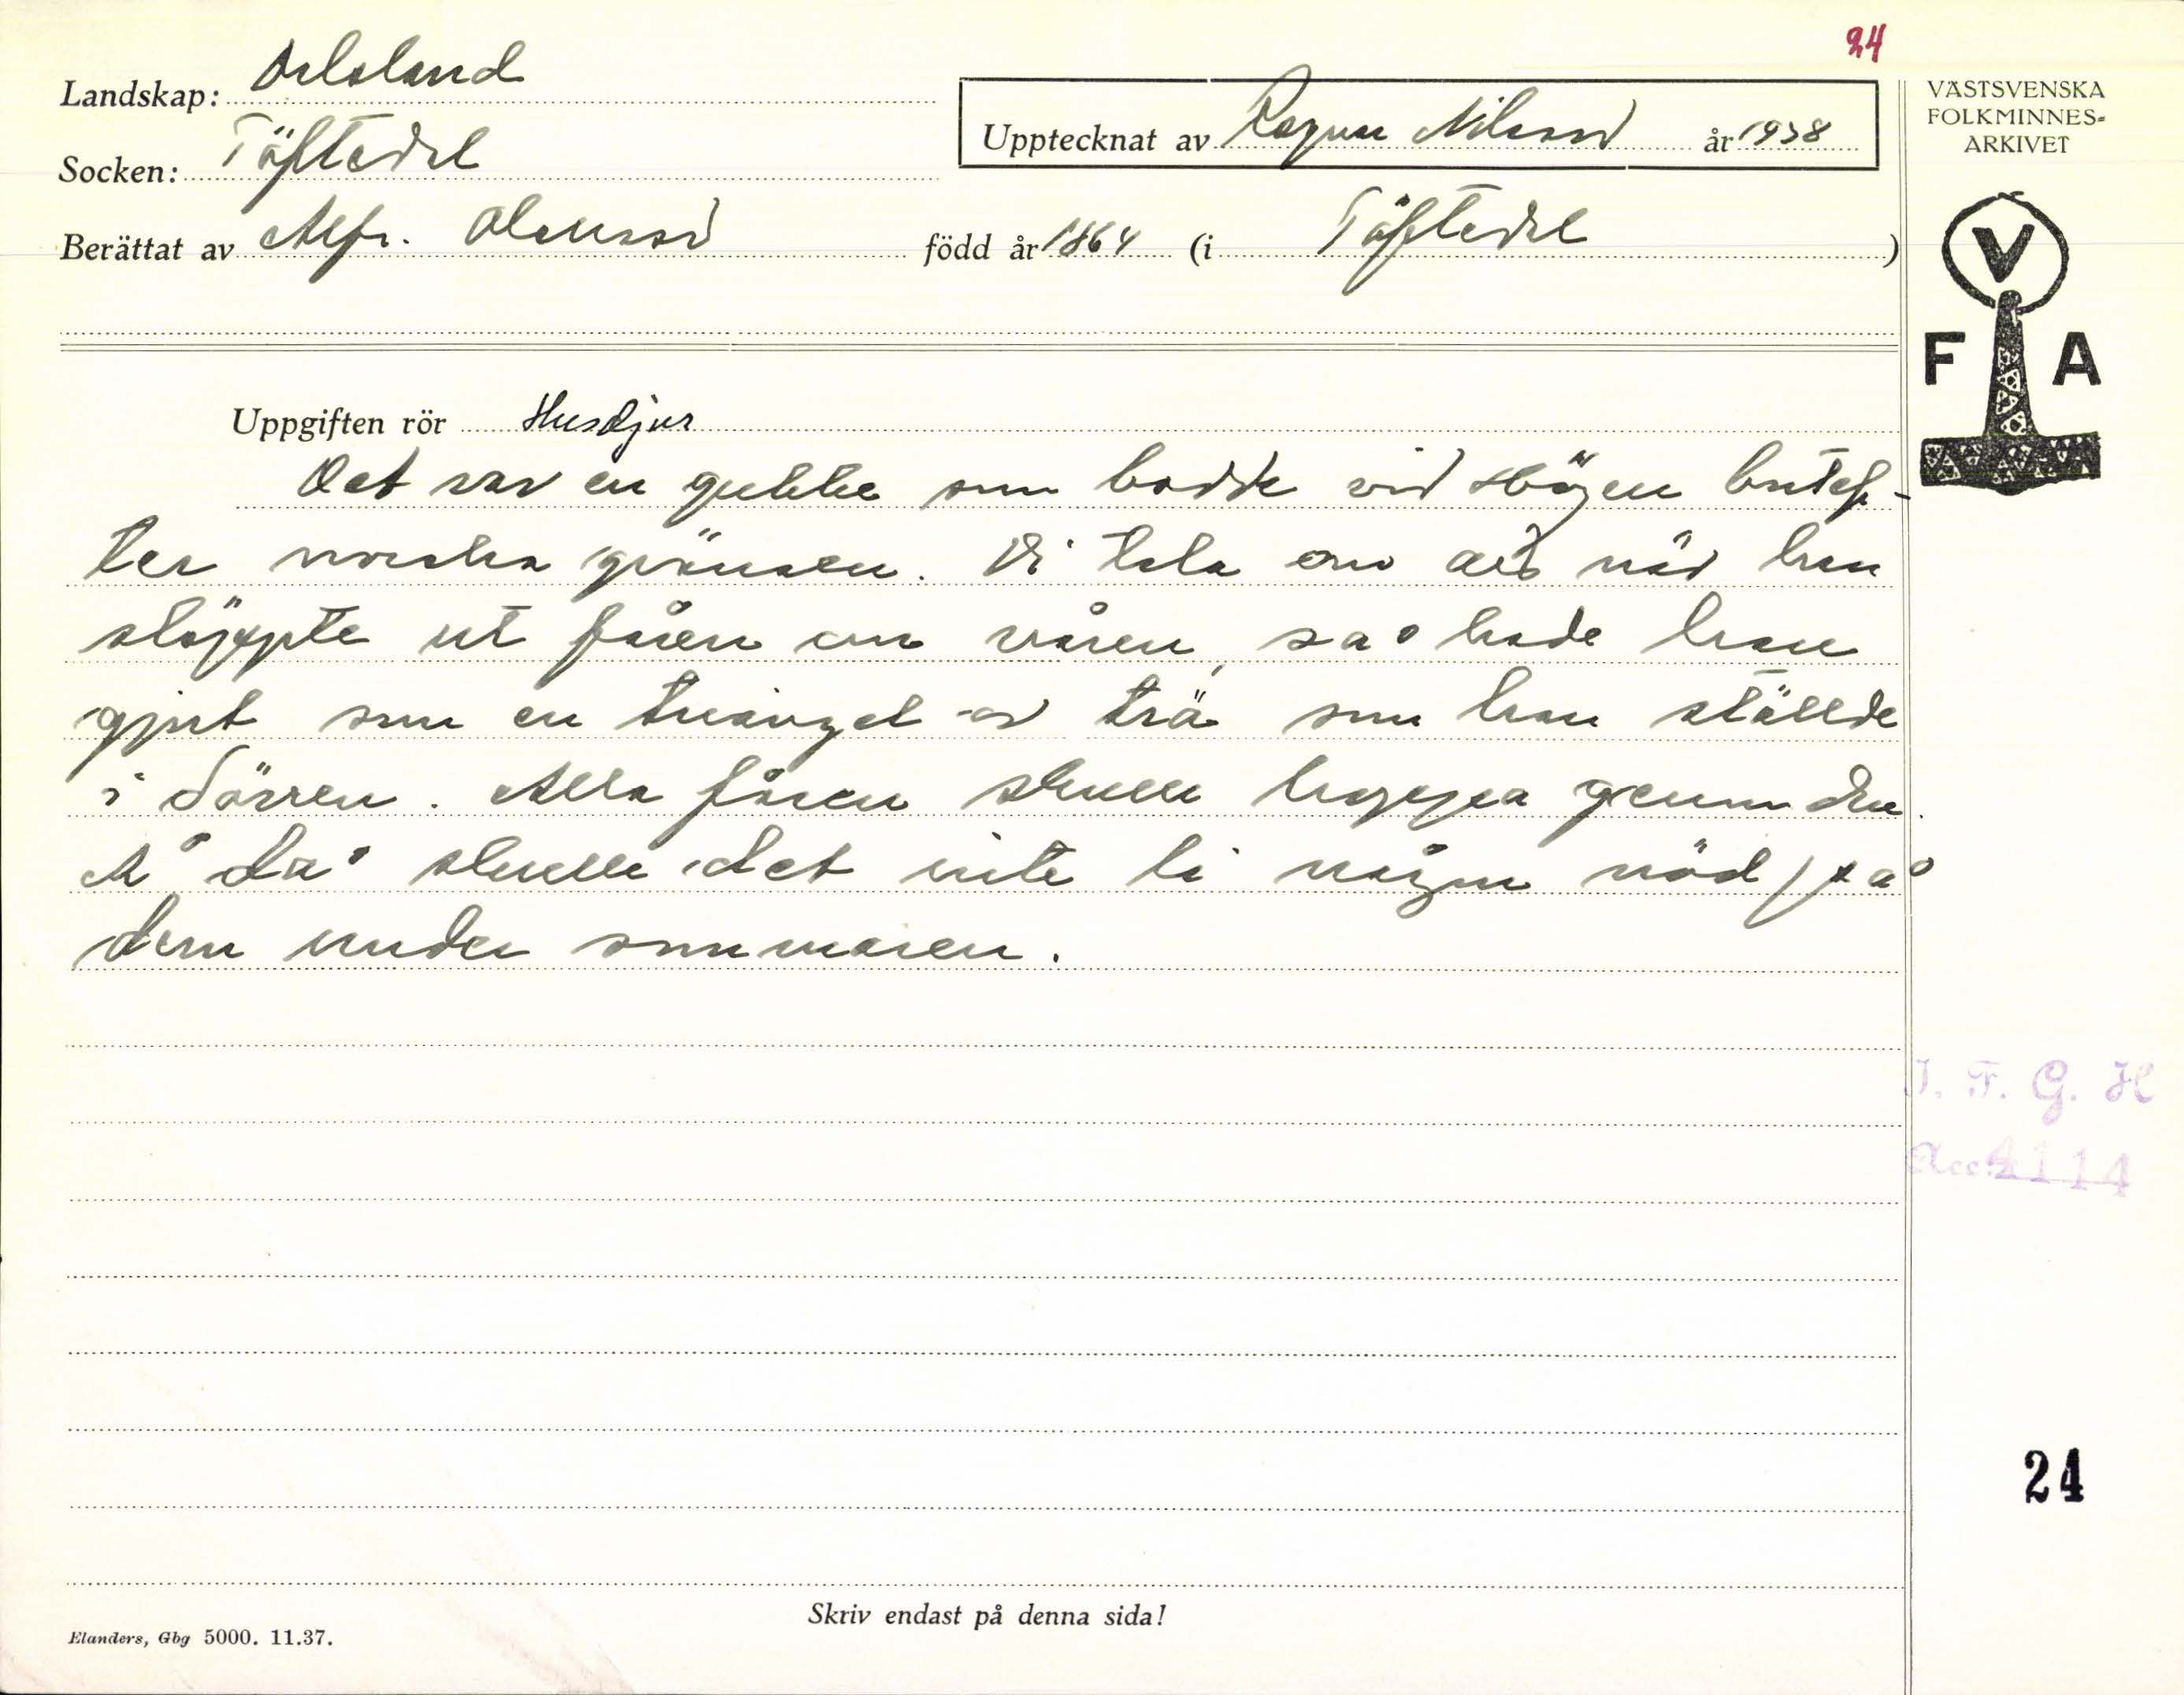 24
Landskap: Dalsland
Socken: Töftedal
Upptecknat av Ragnar Nilsson år 1938
Berättat av Alfr. Olausson född år 1864 (i Töftedal)
VÄSTSVENSKA
FOLKMINNES=
ARKIVET
V
F A
Uppgiften rör Husdjur
Det var en gubbe som bodde vid Högen bortef-
ter norska gränsen. Di tala om att när han
släppte ut fåren om våren, så hade han
gjort som en triangel av trä som han ställde
i dörren. Alla fåren skulle hoppa genom den.
Å då skulle det inte bli någon nöd på
dem under sommaren.
I. F. G. H
Acc. 4114
24
Skriv endast på denna sida!
Elanders, Gbg 5000. 11.37.